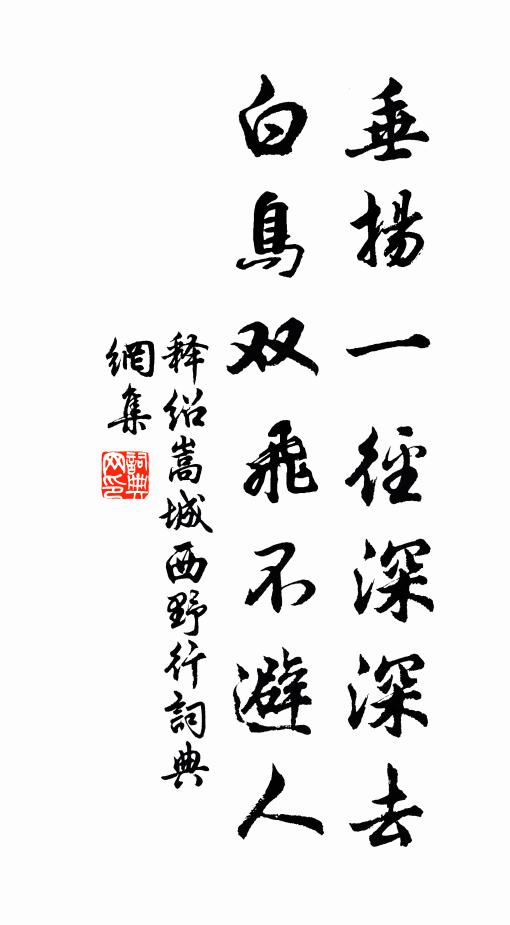 垂揚一徑深深去
白鳥双飛不避人
释绍嵩城西野行詞典
網集
詞典網印